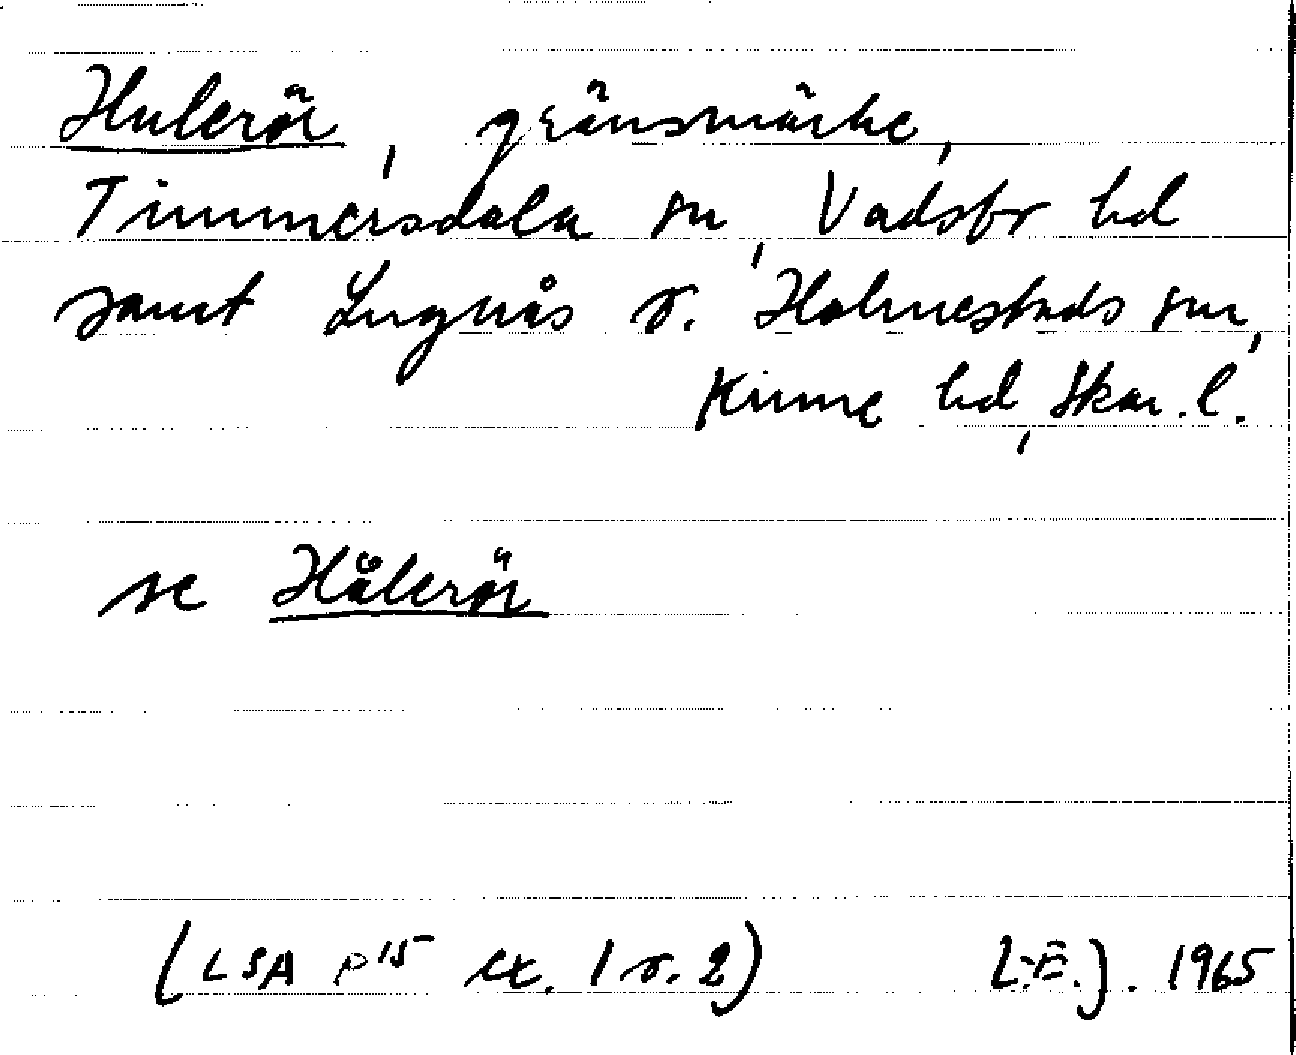 Hulerör, gränsmärke,
Timmersdala sn, Vadsbr hd
samt Lugnås o. Holmestads snr,
Kinne hd, Skar. l.
se Hålerör
(LSA P 15 ex. 1 o. 2) L.E.J. 1965